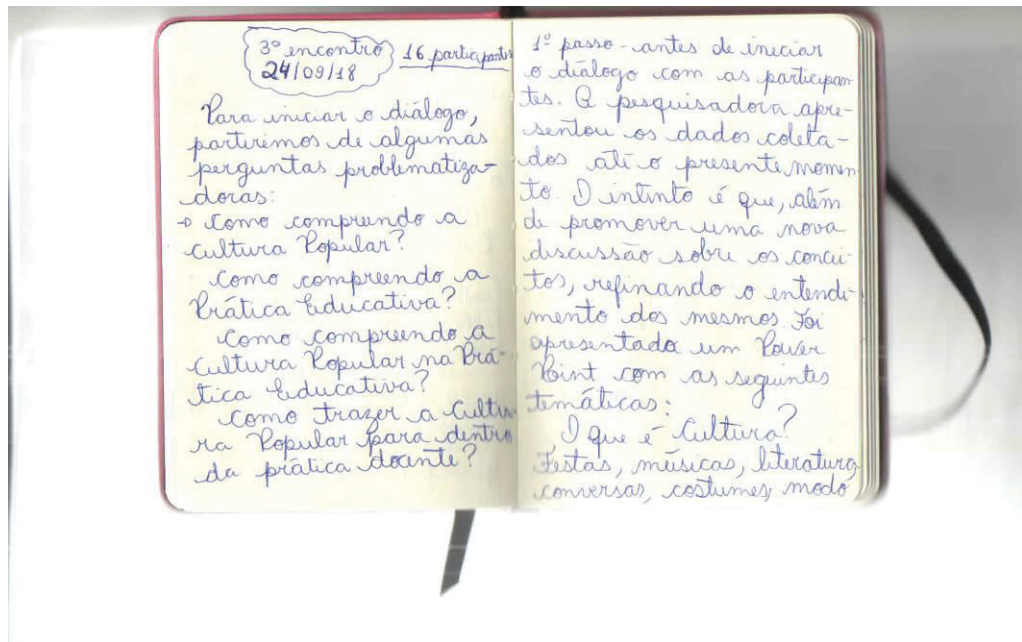 3º encontro
24/09/18
16 participantes
Para iniciar o diálogo,
partiremos de algumas
perguntas problematiza-
doras:
→ Como compreendo a
Cultura Popular?
Como compreendo a
Prática Educativa?
Como compreendo a
Cultura Popular na Prá-
tica Educativa?
Como trazer a Cultu
ra Popular para dentro
da prática docente?
1º passo - antes de iniciar
o diálogo com as participan
tes. A pesquisadora apre-
sentou os dados coleta-
dos até o presente momen
to. O intinto é que, além
de promover uma nova
discussão sobre os concei
tos, refinando o entendi-
mento dos mesmos. Foi
apresentada um Power
Point com as seguintes
temáticas:
O que é Cultura?
Festas, músicas, literatura,
conversas, costumes, modo